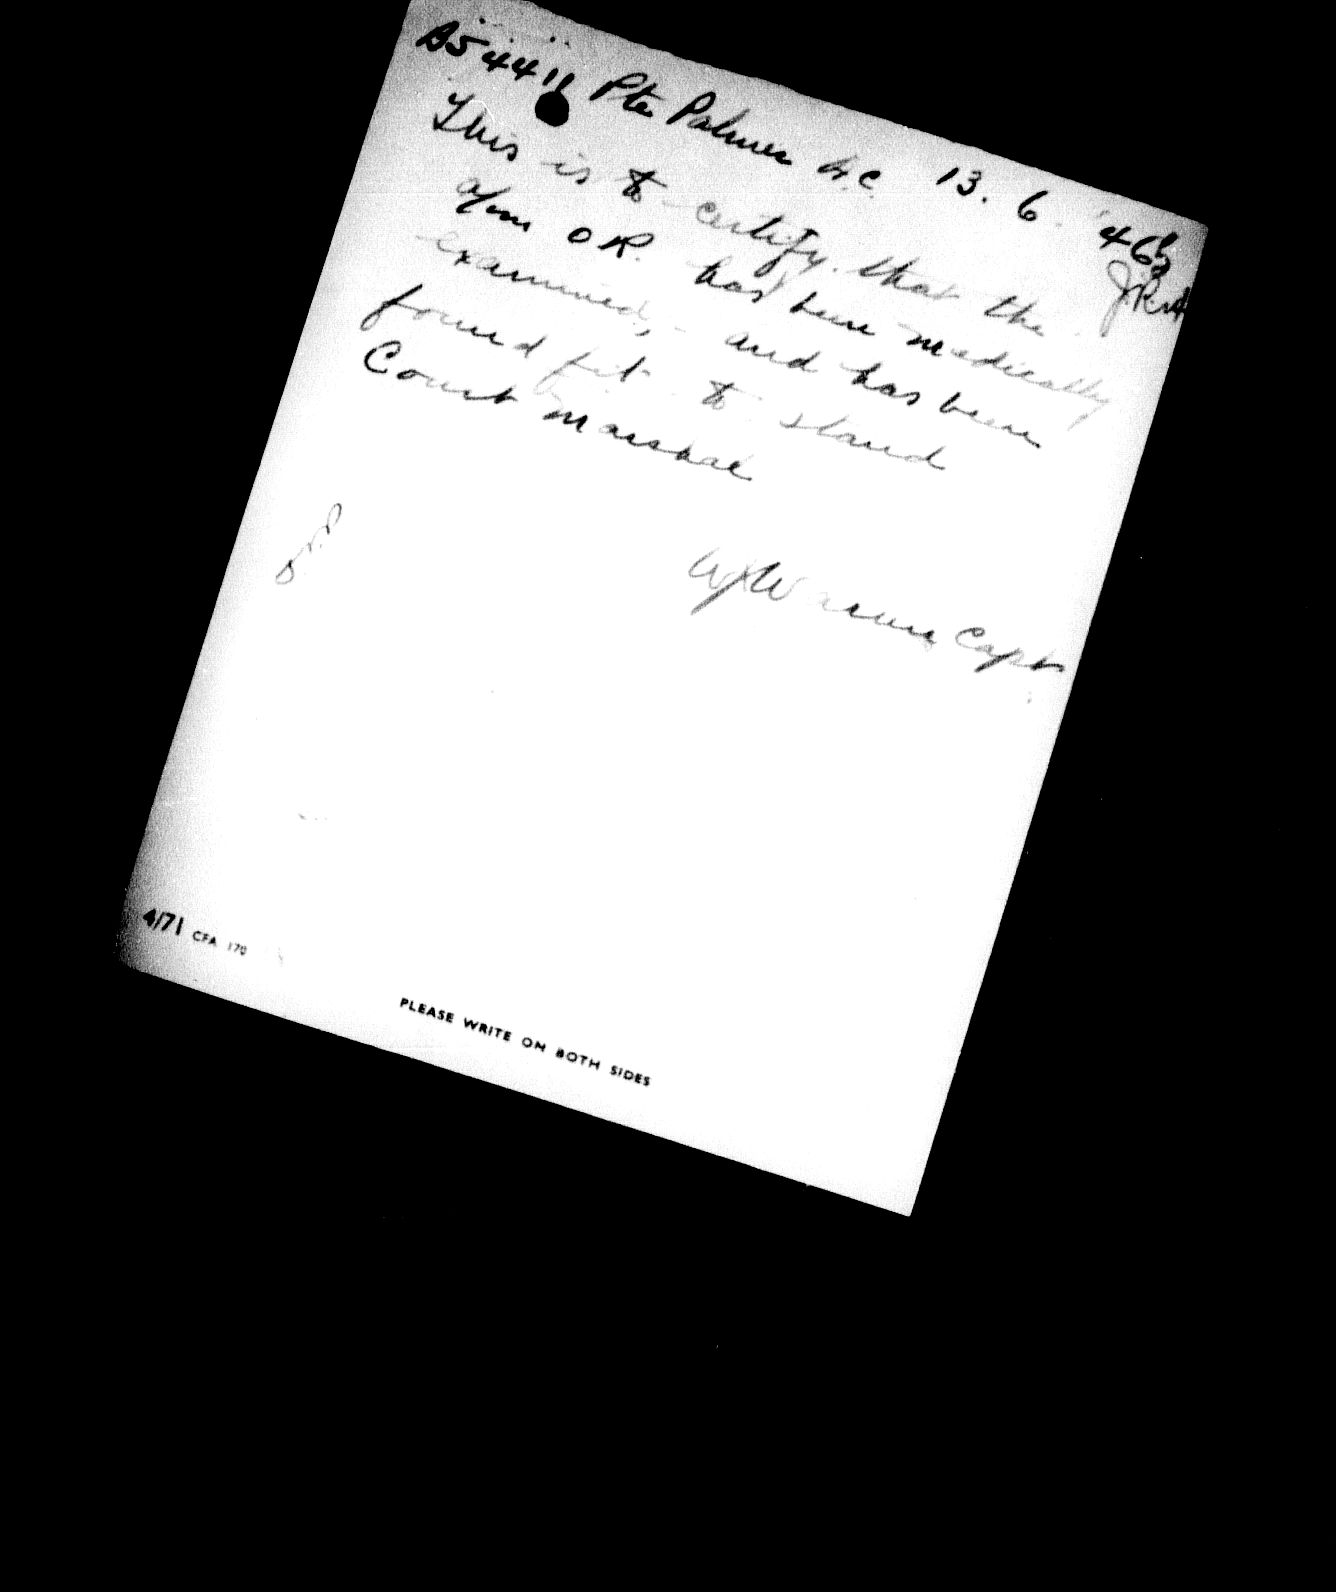 Pte Palmer 13. 6. '46
This is to certify that the
a/m O.R. has been medically
examined, - and has been
found fit to stand
Court Marshal
Capt
4/71 CFA 170
PLEASE WRITE ON BOTH SIDES